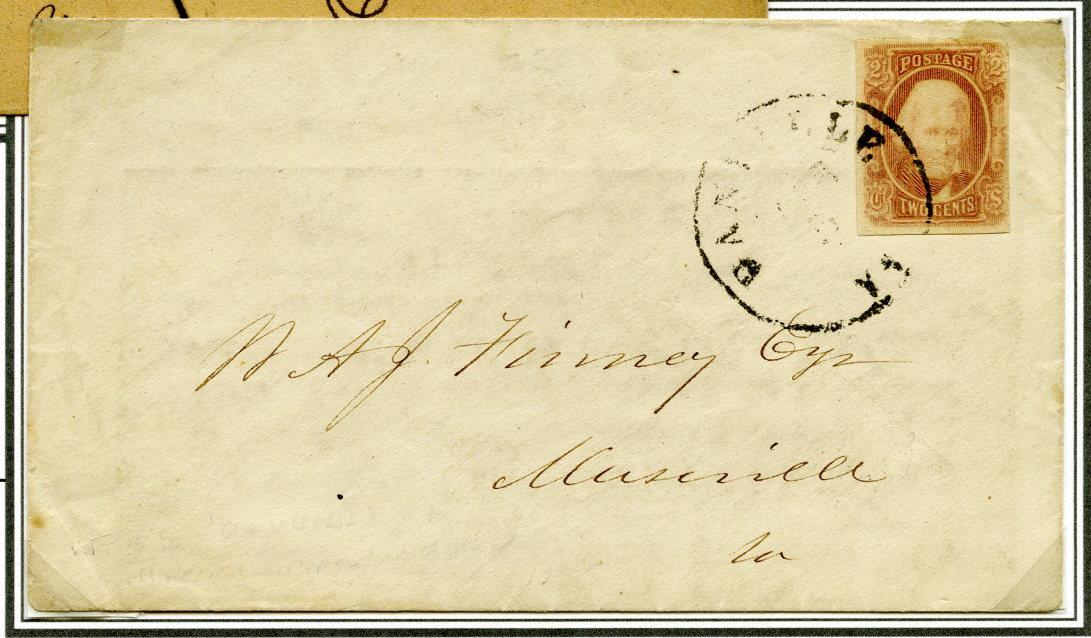 2 POSTAGE 2
TWO CENTS
DANVILLE
VA
W A J. Finney Esqr
Museville
Va